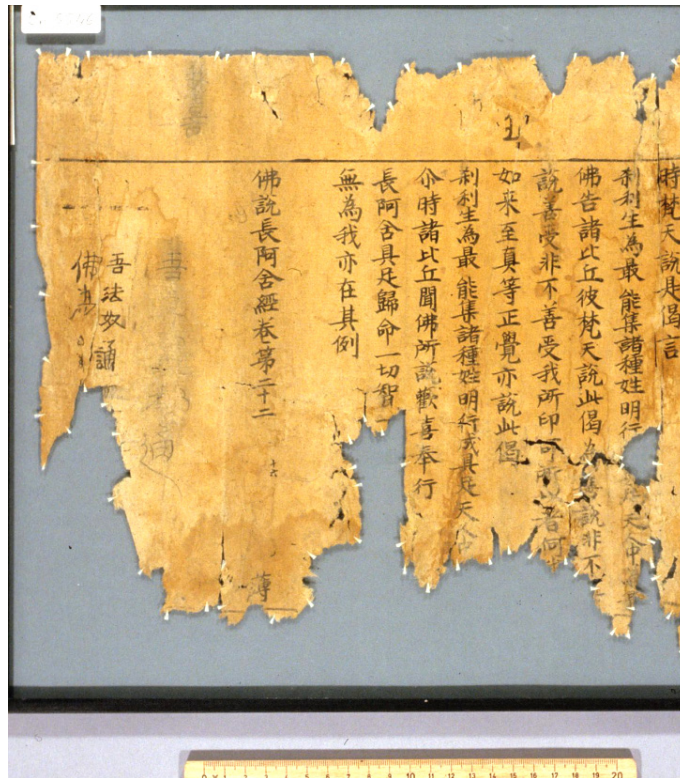 時梵天說是偈言
剎利生為最 能集諸種姓明行 天人中
佛告諸比丘彼梵天說此偈為善說非不
說善受非不善受我所印可所以者何
如来至真等正覺亦說此偈
剎利生為最 能集諸種姓明行成具足天人中
尒時諸比丘聞佛所說歡喜奉行
長阿含具足歸命一切智 一
無為我亦在其例
佛說長阿含經卷第二十二
十六
吾法奴誦
佛
0 1 2 3 4 5 6 7 8 9 10 11 12 13 14 15 16 17 18 19 20